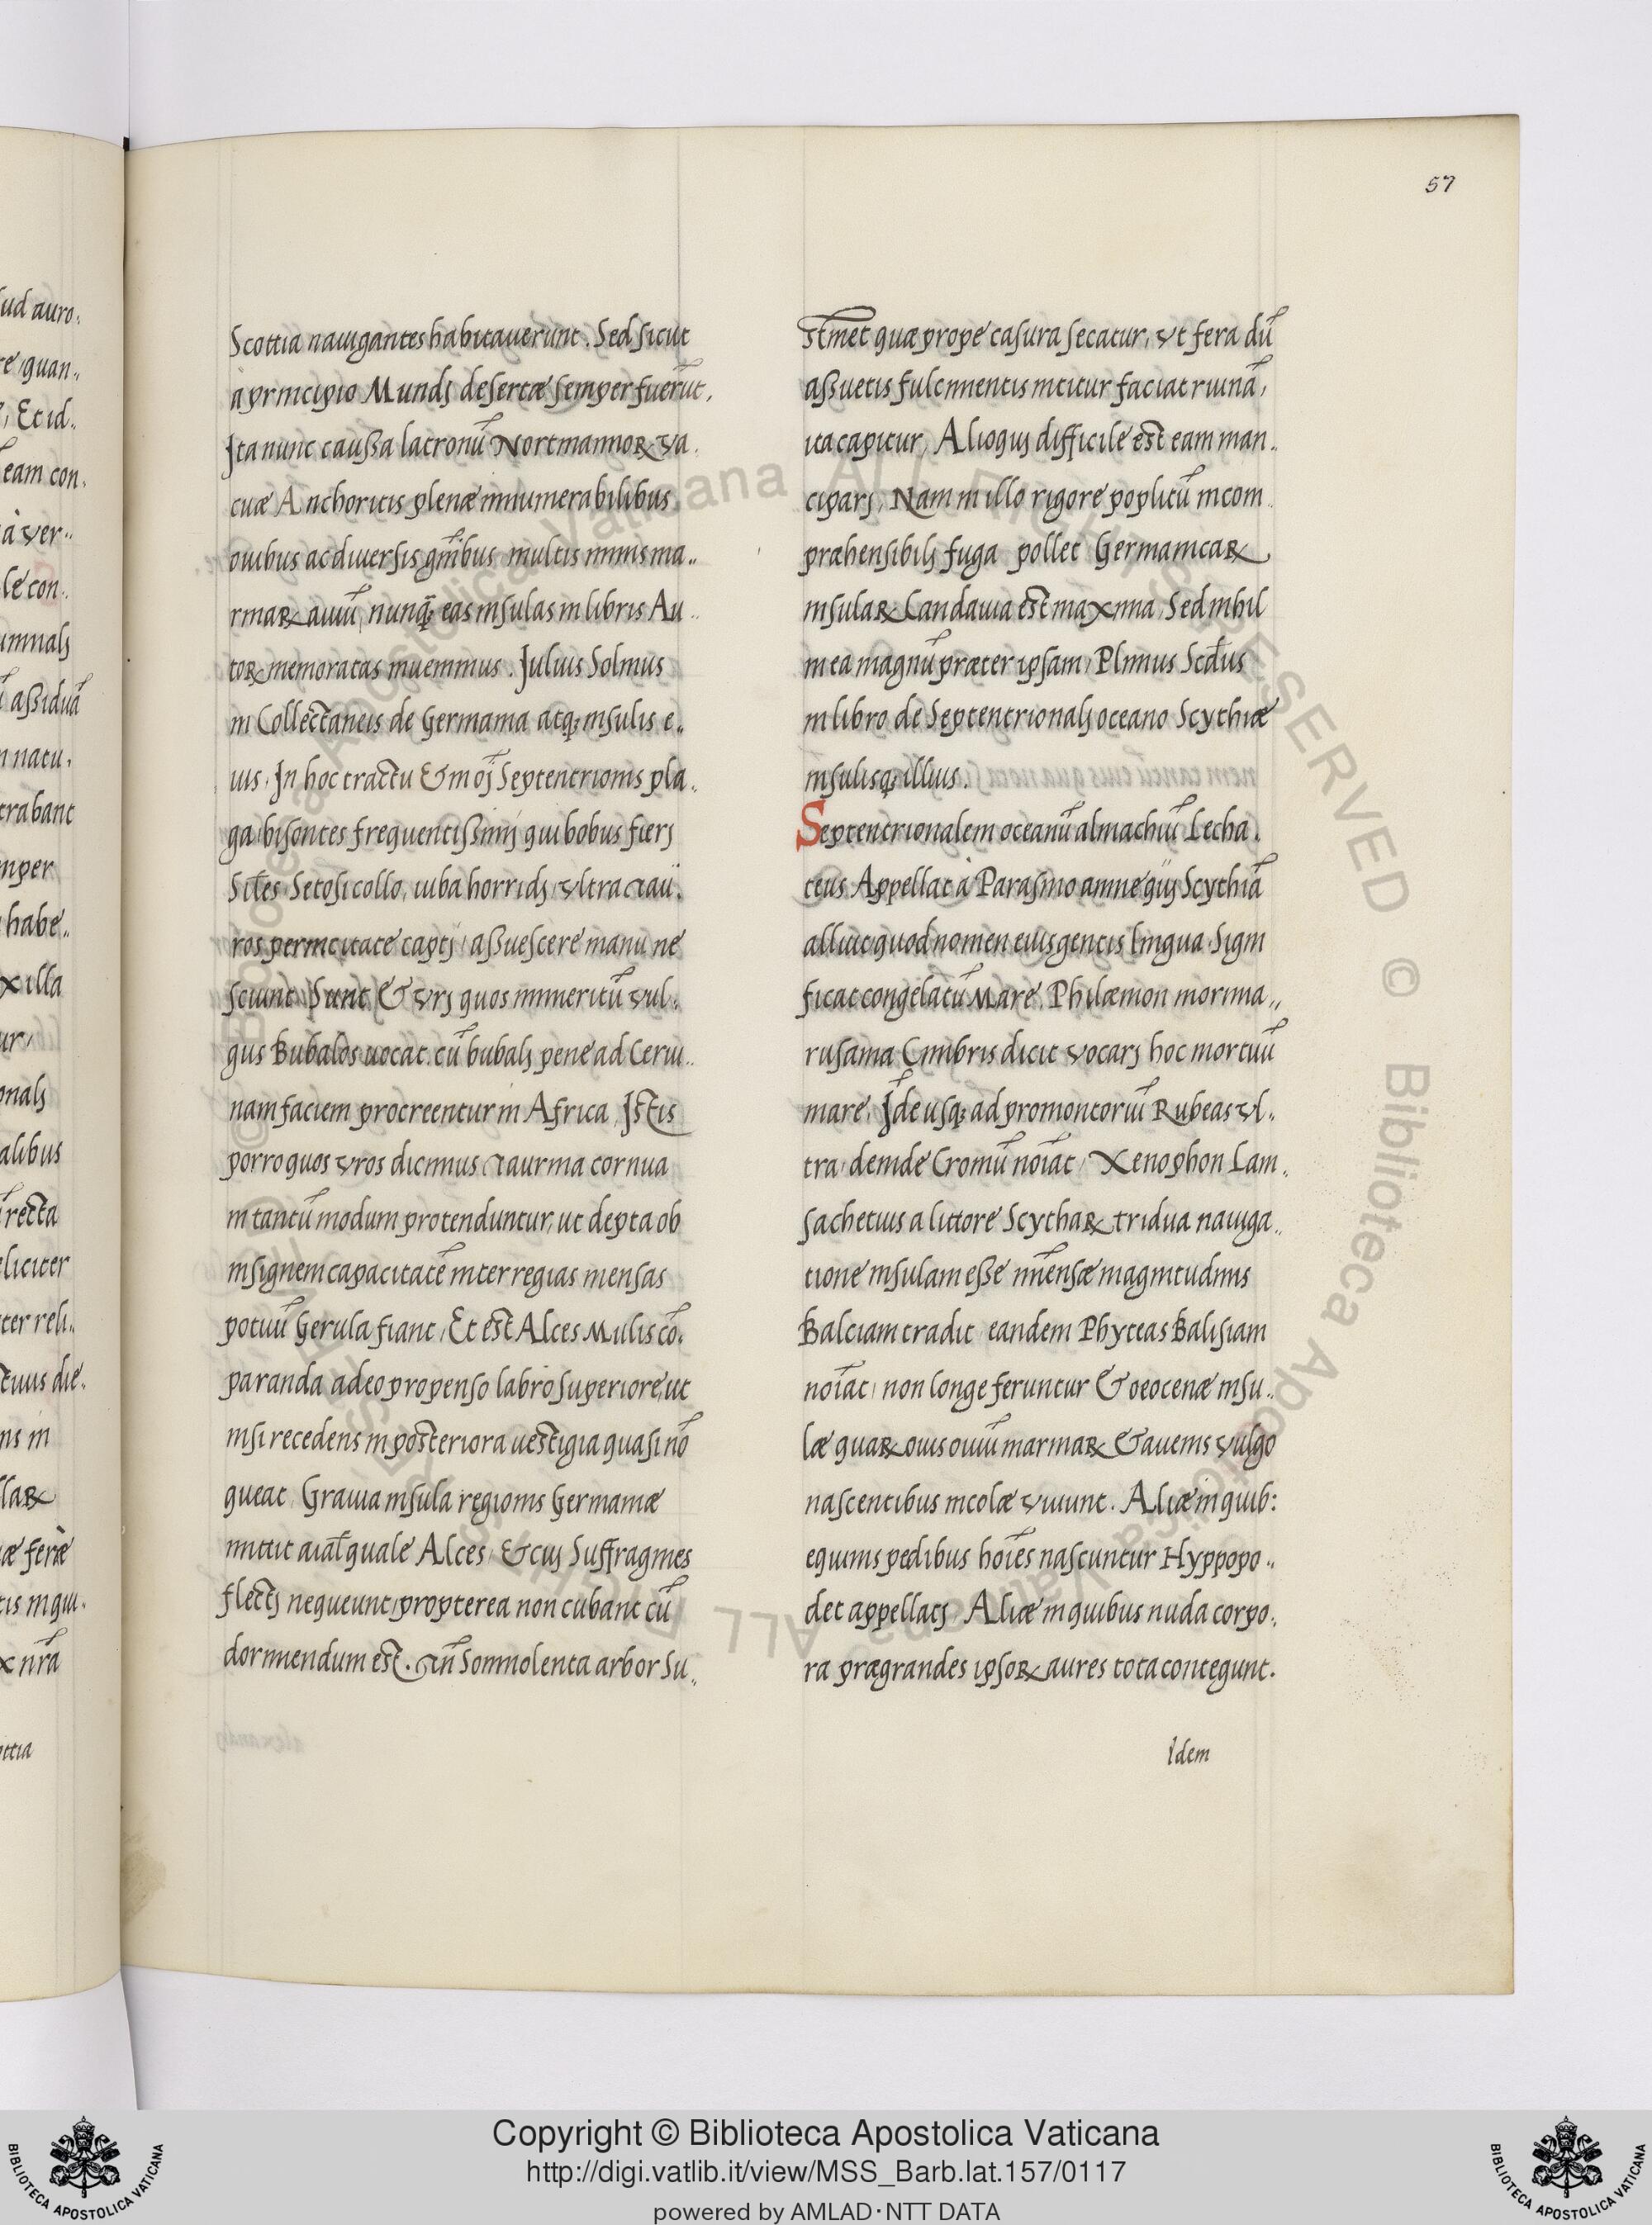 57
Scottia nauigantes habitauerunt. Sed sicut
à principio Mundj desertæ semper fuerūt,
Ita nunc caußa latronū Nortmannoꝝ va
cuæ Anchoritis plenæ innumerabilibus
ouibus ac diuersis gn̄ibus multis nimis ma..
rinaꝝ auiū, nunq̄ꝫ eas insulas in libris Au..
toꝝ memoratas inuenimus. Juluis Solinus
in Collectaneis de Germania atqꝫ insulis e..
ius, In hoc tractu & in oj̄ Septentrionis pla..
ga bisontes frequentißimj qui bobus fierj
Siłes Setosi collo, iuba horridj, vltra tau..
ros pernicitate captj, aßuescere manu ne
sciunt. Sunt & vrj quos immeritū vul..
gus Bubalos uocat. cū bubalj pene ad Cerui..
nam faciem procreentur in Africa, Istis
porro quos vros dicimus taurina cornua
in tantū modum protenduntur, ut depta ob
insignem capacitatē inter regias mensas
potuū Gerula fiant, Et est Alces Mulis cō..
paranda adeo propenso labro superiore, ut
nisi recedens in posteriora uestigia quasi nō
queat. Grauia insula regionis Germaniæ
mittit aiał quale Alces, & cuj Suffragines
flectj nequeunt, propterea non cubant cū
dormiendum est. tn̄ Somnolenta arbor Su..
stinet quæ prope casura secatur, vt fera dū
aßuetis fulcimentis nititur faciat ruinā,
ita capitur, Alioquj difficile est eam man..
cipari, Nam in illo rigore poplitū incom
præhensibilj fuga pollet Germanicaꝝ
insulaꝝ Candauia est maxima, Sed nihil
in ea magnū præter ipsam, Plinius Scd̄us
in libro de Septentrionalj oceano Scythiæ
insulisqꝫ illius.
Septentrionalem oceanū almachiū Lecha..
teus Appellat à Parasino amne qūj Scythiā
alluit quod nomen eius gentis lingua Signi
ficat congelatū Mare. Philæmon morima..
rusama Cimbris dicit vocarj hoc mortuū
mare, Īde usqꝫ ad promontoriū Rubeas vl..
tra deinde Cromū noīat, Xenophon Lam..
sachetuis a littore Scythaꝝ tridua nauiga..
tione insulam eße im̄ensæ magnitudinis
Balciam tradit, eandem Phyteas Balisiam
noīat, non longe feruntur & oeocenæ insu..
læ quaꝝ ouis ouiū marinaꝝ & auenis vulgo
nascentibus incolæ viuunt. Aliæ in quib:
equinis pedibus hoīes nascuntur Hyppopo..
det appellatj, Aliæ in quibus nuda corpo..
ra prægrandes ipsoꝝ aures tota contegunt.
Idem
Copyright © Biblioteca Apostolica Vaticana
http://digi.vatlib.it/view/MSS_Barb.lat.157/0117
powered by AMLAD·NTT DATA